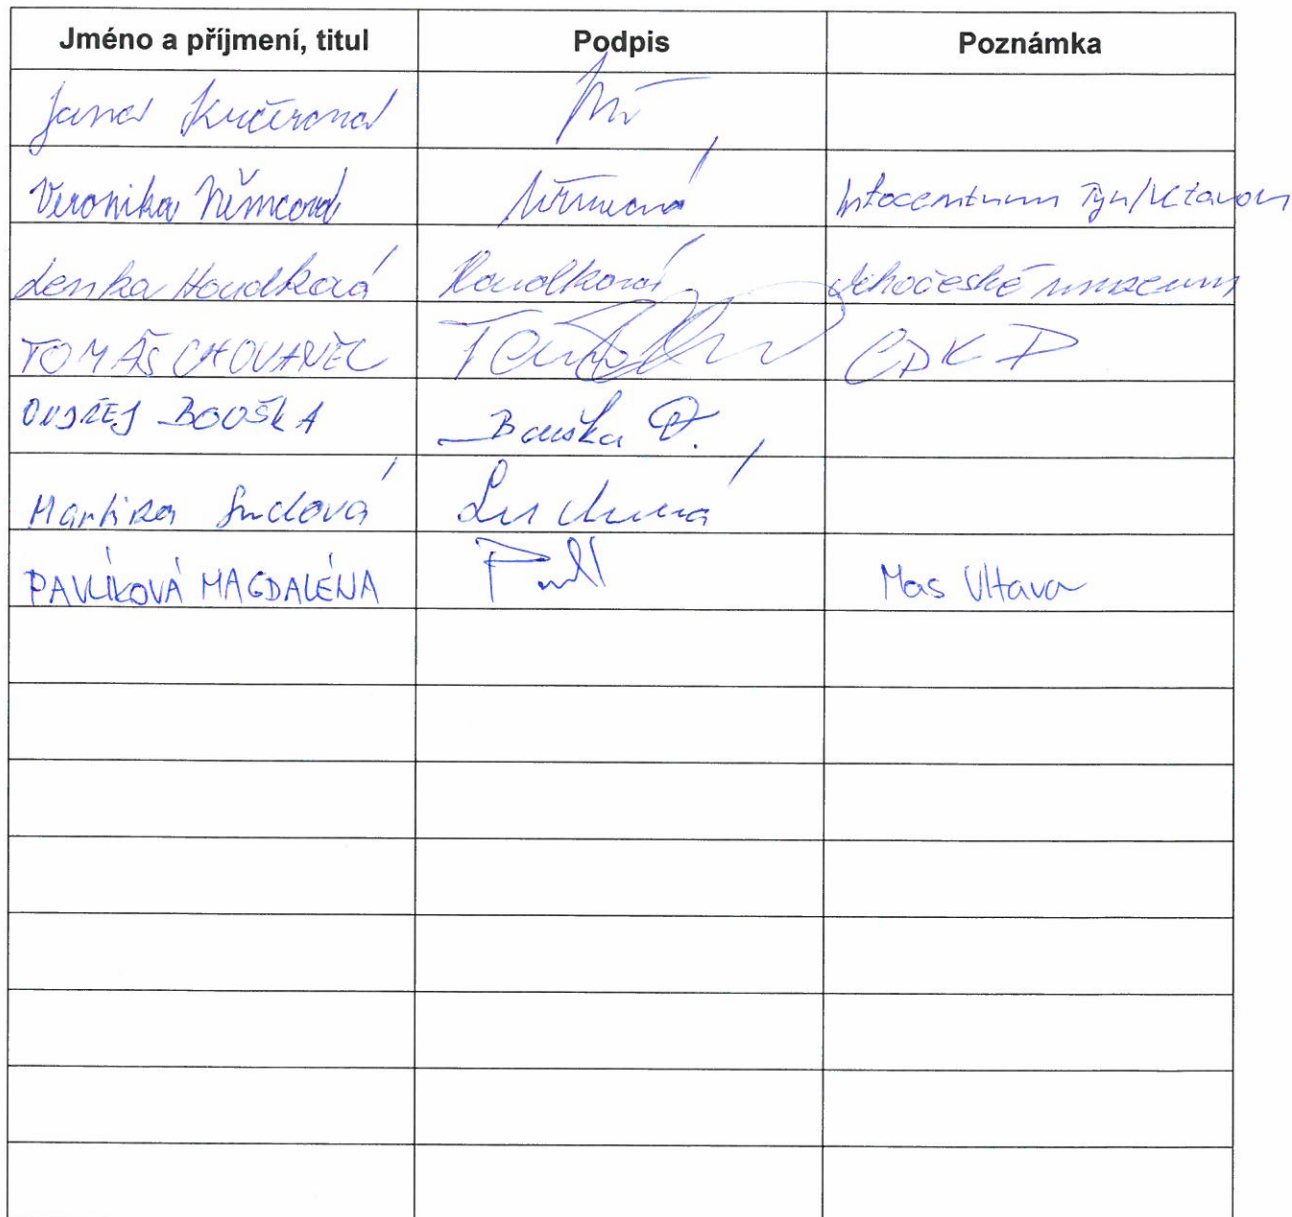 Jméno a příjmení, titul Podpis Poznámka
Jana Kučerová
Veronika Němcová Němcová Infocentrum Týn/Vltavou
Lenka Houdková Houdková Jihočeské muzeum
TOMÁŠ CHOVANEC
ONDŘEJ BOUŠKA Bouška O.
Martina
PAVLÍKOVÁ MAGDALÉNA Mas Vltava